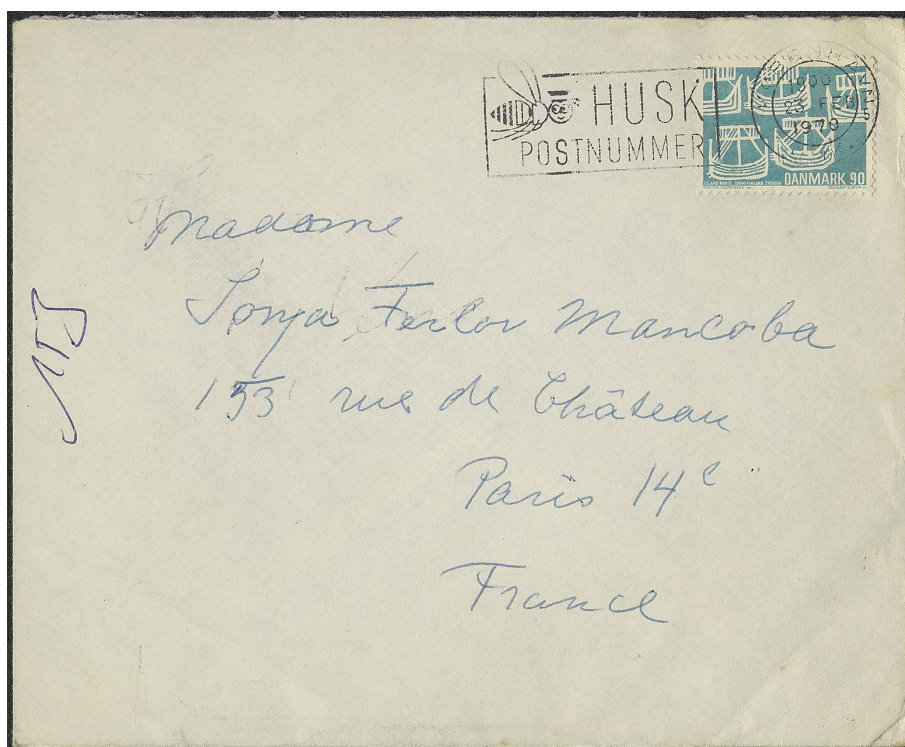 HUSK
POSTNUMMER
KØBENHAVN
1900
23 FEB
1970
DANMARK 90
Madame
Sonja Ferlov Mancoba
153 rue de Château
Paris 14e
France
153